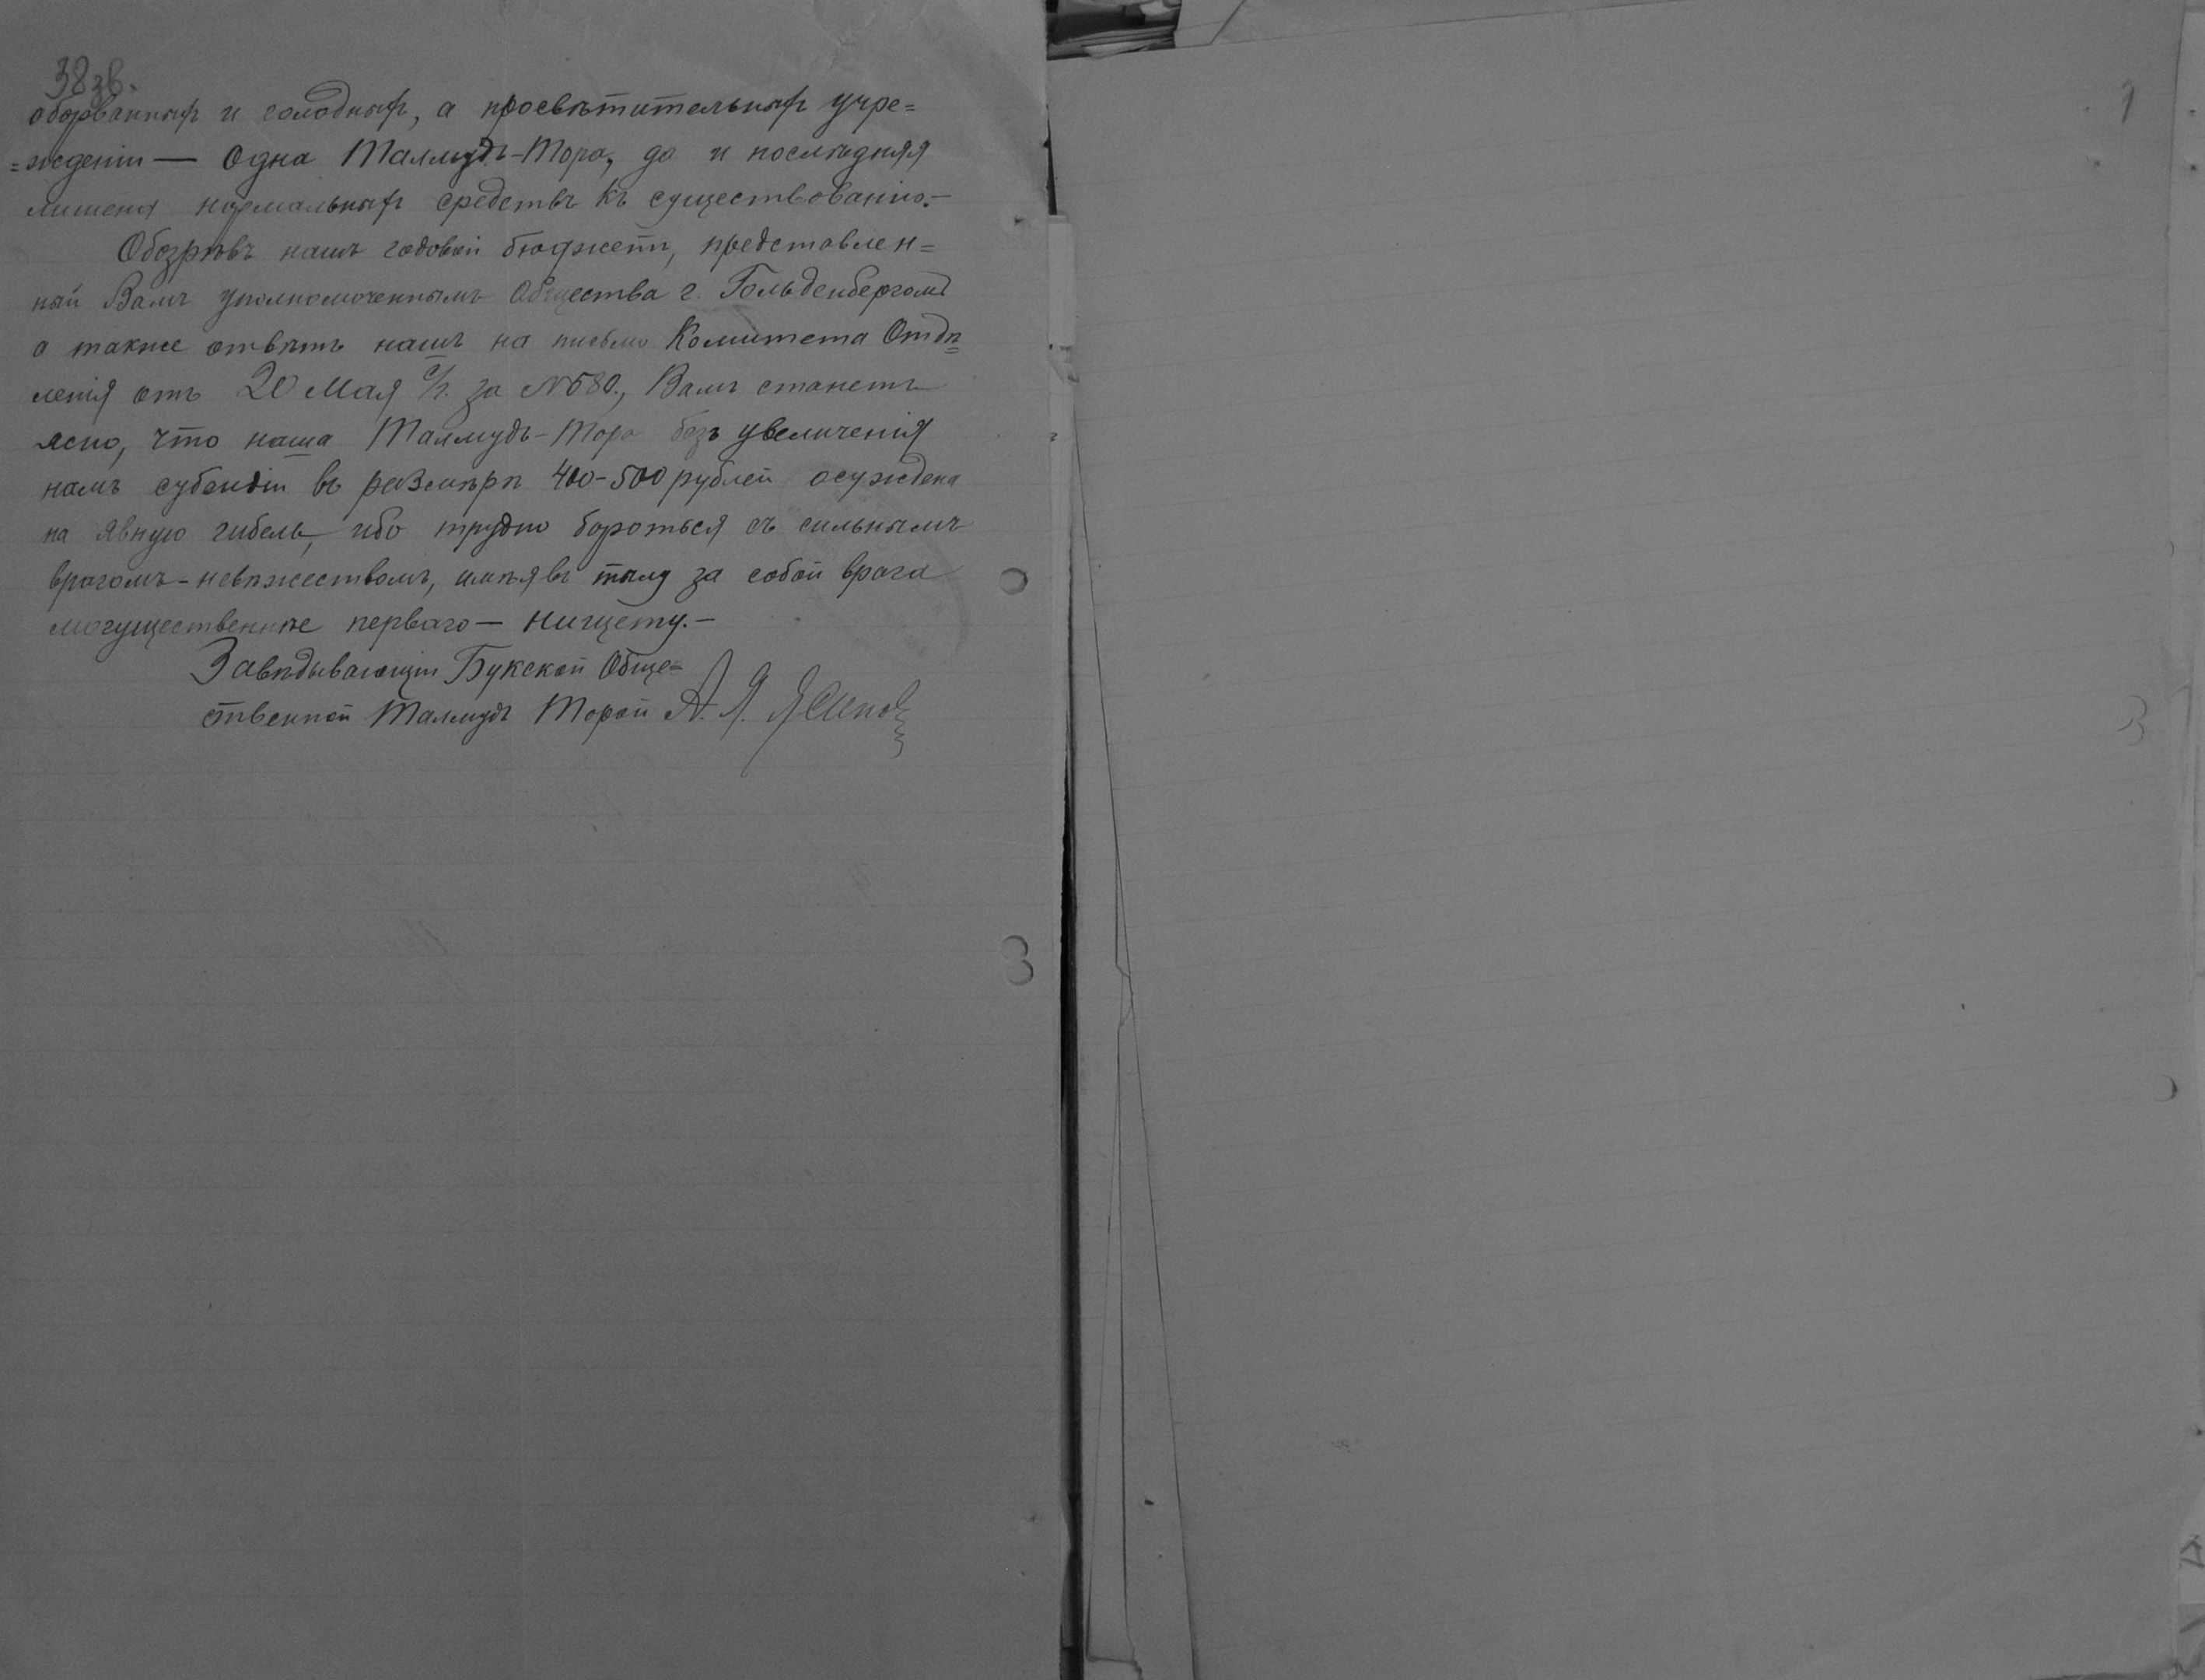 38зв.
оборванныхъ и голодныхъ, а просвѣтительныхъ учре=
=жденій — Одна Талмудъ-Тора, да и послѣдняя
лишена нормальныхъ средствъ къ существованію.—
Обозрѣвъ нашъ годовой бюджетъ, представлен=
ный Вамъ уполномоченнымъ Общества г. Гольденбергомъ
а также отвѣтъ нашъ на письмо Комитета Отдѣ=
ленія отъ 20 Мая с/г. за №580., Вамъ станетъ
ясно, что наша Талмудъ-Тора безъ увеличенія
намъ субсидіи въ размѣрѣ 400-500 рублей осуждена
на явную гибель, ибо трудно бороться съ сильнымъ
врагомъ-невѣжествомъ, имѣя въ тылу за собой врага
могущественнѣе перваго — нищету.—
Завѣдывающій Букской Обще=
ственной Талмудъ Торой А. Я.